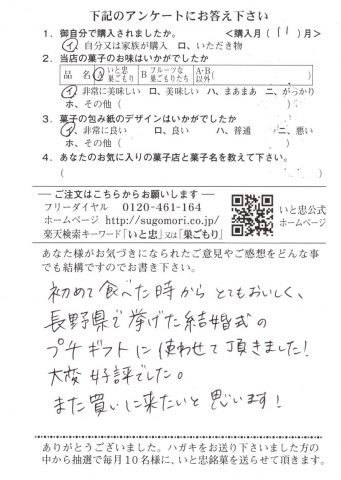 下記のアンケートにお答え下さい
1．御自分で購入されましたか。 <購入月（ 11 ）月>
イ、自分又は家族が購入 ロ、いただき物
2．当店の菓子のお味はいかがでしたか
品 名 A いと忠巣ごもり B フルーツな巣ごもりたち A・B以外（ ）
イ、非常に美味しい ロ、美味しい ハ、まぁまぁ ニ、がっかり
ホ、その他（ ）
3．菓子の包み紙のデザインはいかがでしたか
イ、非常に良い ロ、良い ハ、普通 ニ、悪い
ホ、その他（ ）
4．あなたのお気に入りの菓子店と菓子名を教えて下さい。
（ ）
― ご注文はこちらからお願いします ―
フリーダイヤル 0120-461-164
ホームページ http://sugomori.co.jp/
楽天検索キーワード「いと忠」又は「巣ごもり」
いと忠公式
ホームページ
あなた様がお気づきになられたご意見やご感想をどんな事
でも結構ですのでお書き下さい。
初めて食べた時から とてもおいしく、
長野県で挙げた結婚式の
プチギフトに使わせて頂きました!
大変好評でした。
また買いに来たいと思います!
ありがとうございました。ハガキをお送り下さいました方の
中から抽選で毎月10名様に、いと忠銘菓を送らせて頂きます。